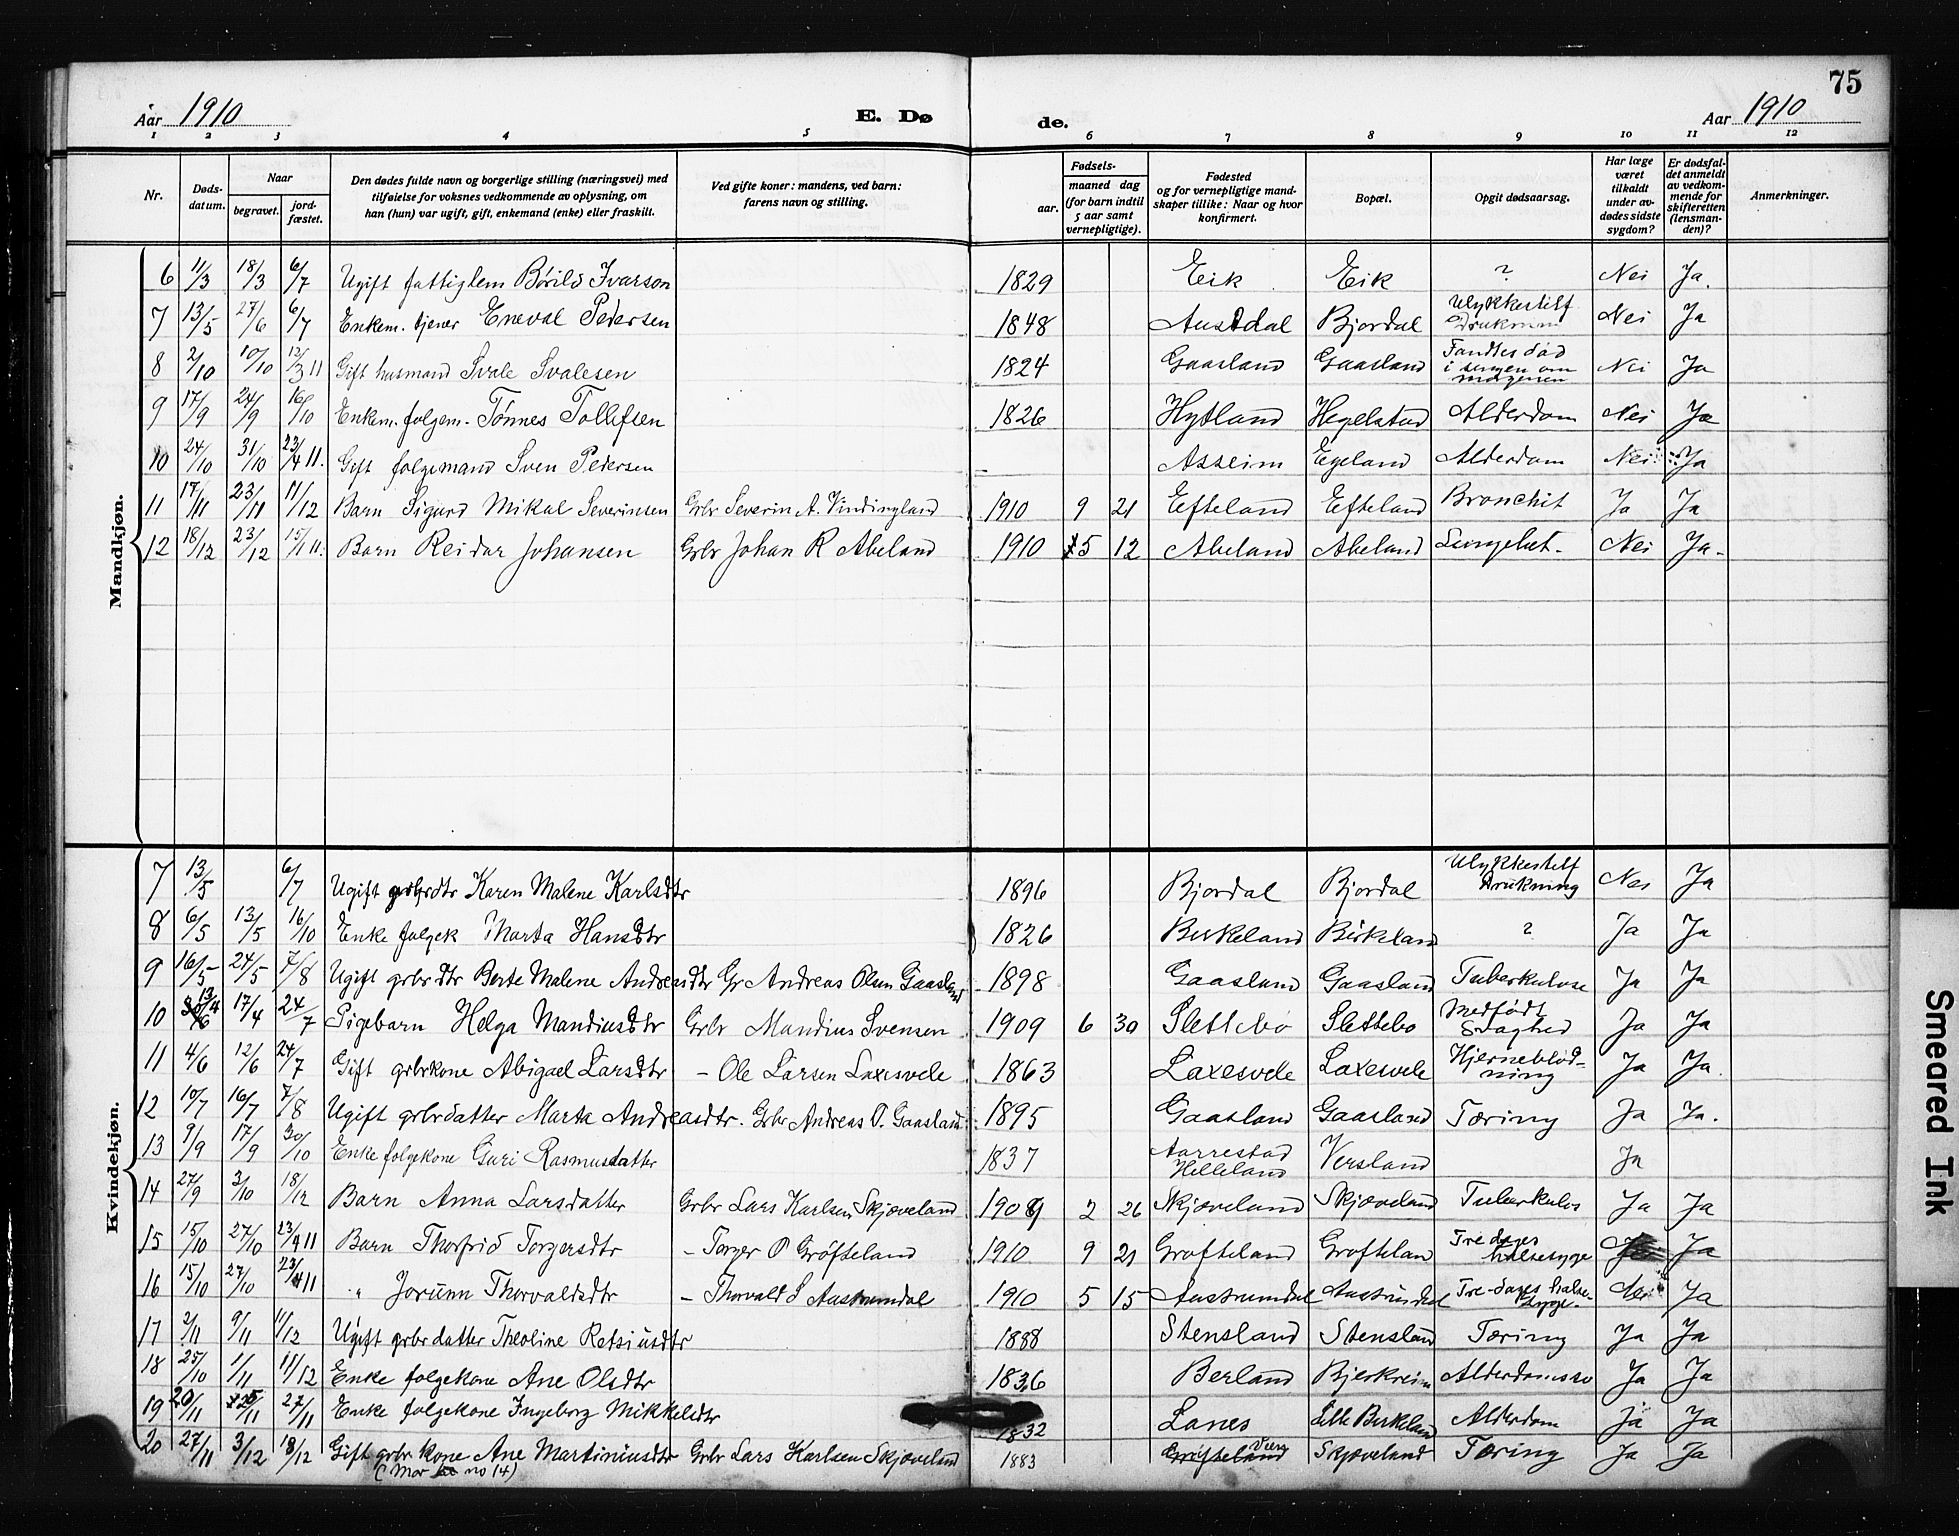 75
Aar 1910 E. Dø de. Aar 1910
1 2 3 4 5 6 7 8 9 10 11 12
Nr. Døds-datum. Naar begravet. jord-fæstet. Den dødes fulde navn og borgerlige stilling (næringsvei) med tilføielse for voksnes vedkommende av oplysning, om han (hun) var ugift, gift, enkemand (enke) eller fraskilt. Ved gifte koner: mandens, ved barn: farens navn og stilling. Fødsels- aar. maaned dag (for barn indtil 5 aar samt vernepligtige). Fødested og for vernepligtige mand-skaper tillike: Naar og hvor konfirmert. Bopæl. Opgit dødsaarsag. Har læge været tilkaldt under av-dødes sidste sygdom? Er dødsfal-det anmeldt av vedkom-mende for skifteretten (lensman-den)? Anmerkninger.
Mandkjøn.
6 11/3 18/3 6/7 Ugift fattiglem Børild Ivarson 1829 Eik Eik ? Nei Ja.
7 13/5 27/6 6/7 Enkem. tjener Eneval Pedersen 1848 Austdal Bjordal Ulykkestilf Drukning Nei Ja
8 2/10 10/10 12/3 11 Gift husmand Svale Svalesen 1824 Gaasland Gaasland Fandtes død i sengen om morgenen Nei Ja
9 17/9 24/9 16/10 Enkem. folgem. Tønnes Tollefsen 1826 Hytland Hegelstad Alderdom Nei Ja
10 24/10 31/10 23/4 11. Gift folgemand Sven Pedersen – Asseim Egeland Alderdom Nei Ja
11 17/11 23/11 11/12 Barn Sigurd Mikal Severinsen Grbr Severin A. Vindingland 1910 9 21 Efteland Efteland Bronchit Ja Ja
12 18/12 23/12 15/1 11. Barn Reidar Johansen Grbr Johan R Abeland 1910 5 12 Abeland Abeland Lungebet. Nei Ja.
Kvindekjøn.
7 13/5 6/7 Ugift grbrdtr Karen Malene Karlsdtr 1896 Bjordal Bjordal Ulykkestilf Drukning Nei Ja
8 6/5 13/5 16/10 Enke folgek Marta Hansdtr 1826 Birkeland Birkeland ? Ja Ja
9 16/5 24/5 7/8 Ugift grbrdtr Berte Malene Andreasdtr Gr Andreas Olsen Gaasland 1898 Gaasland Gaasland Tuberkulose Ja Ja
10 13/4 17/4 24/7 Pigebarn Helga Mandiusdtr Grbr Mandius Svensen 1909 6 30 Slettebø Slettebo Medfødt Svaghed Ja Ja
11 4/6 12/6 24/7 Gift grbrkone Abigael Larsdtr – Ole Larsen Laxesvele 1863 Laxesvele Laxesvele Hjerneblød-ning Ja Ja.
12 10/7 16/7 7/8 Ugift grbrdatter Marta Andreasdtr. Grbr Andreas O. Gaasland 1895 Gaasland Gaasland Tæring Ja Ja.
13 9/9 17/9 30/10 Enke folgekone Guri Rasmusdatter 1837 Aarrestad Helleland Versland Ja
14 27/9 3/10 18/12 Barn Anna Larsdatter Grbr Lars Karlsen Skjæveland 1909 2 26 Skjæveland Skjæveland Tuberkulos Ja Ja
15 15/10 27/10 23/4 11 Barn Thorfrid Torgersdtr – Torger P Grøfteland 1910 9 21 Grofteland Groftelan Tre dages halsesyge Ja
16 15/10 27/10 23/4 11 " Jorunn Thorvaldsdtr – Thorvald S Austrumdal 1910 5 15 Austrumdal Austrumdal Tre-dages halse-syge. Nei Ja
17 2/11 9/11 11/12 Ugift grbrdatter Theoline Retsiusdtr 1888 Stensland Stensland Tæring Ja Ja
18 25/10 1/11 11/12 Enke folgekone Ane Olsdtr 1836 Berland Bjerkreim Alderdomssv Ja Ja
19 20/11 25/11 27/11 Enke folgekone Ingeborg Mikkelsdtr 1832 Lanes Lille Birkeland Alderdom Ja Ja
20 27/11 3/12 18/12 Gift grbr kone Ane Martiniusdtr Grbr Lars Karlsen Skjæveland 1883 Grøfteland Skjæveland Tæring Ja Ja
(Mor no 14)
Smeared Ink